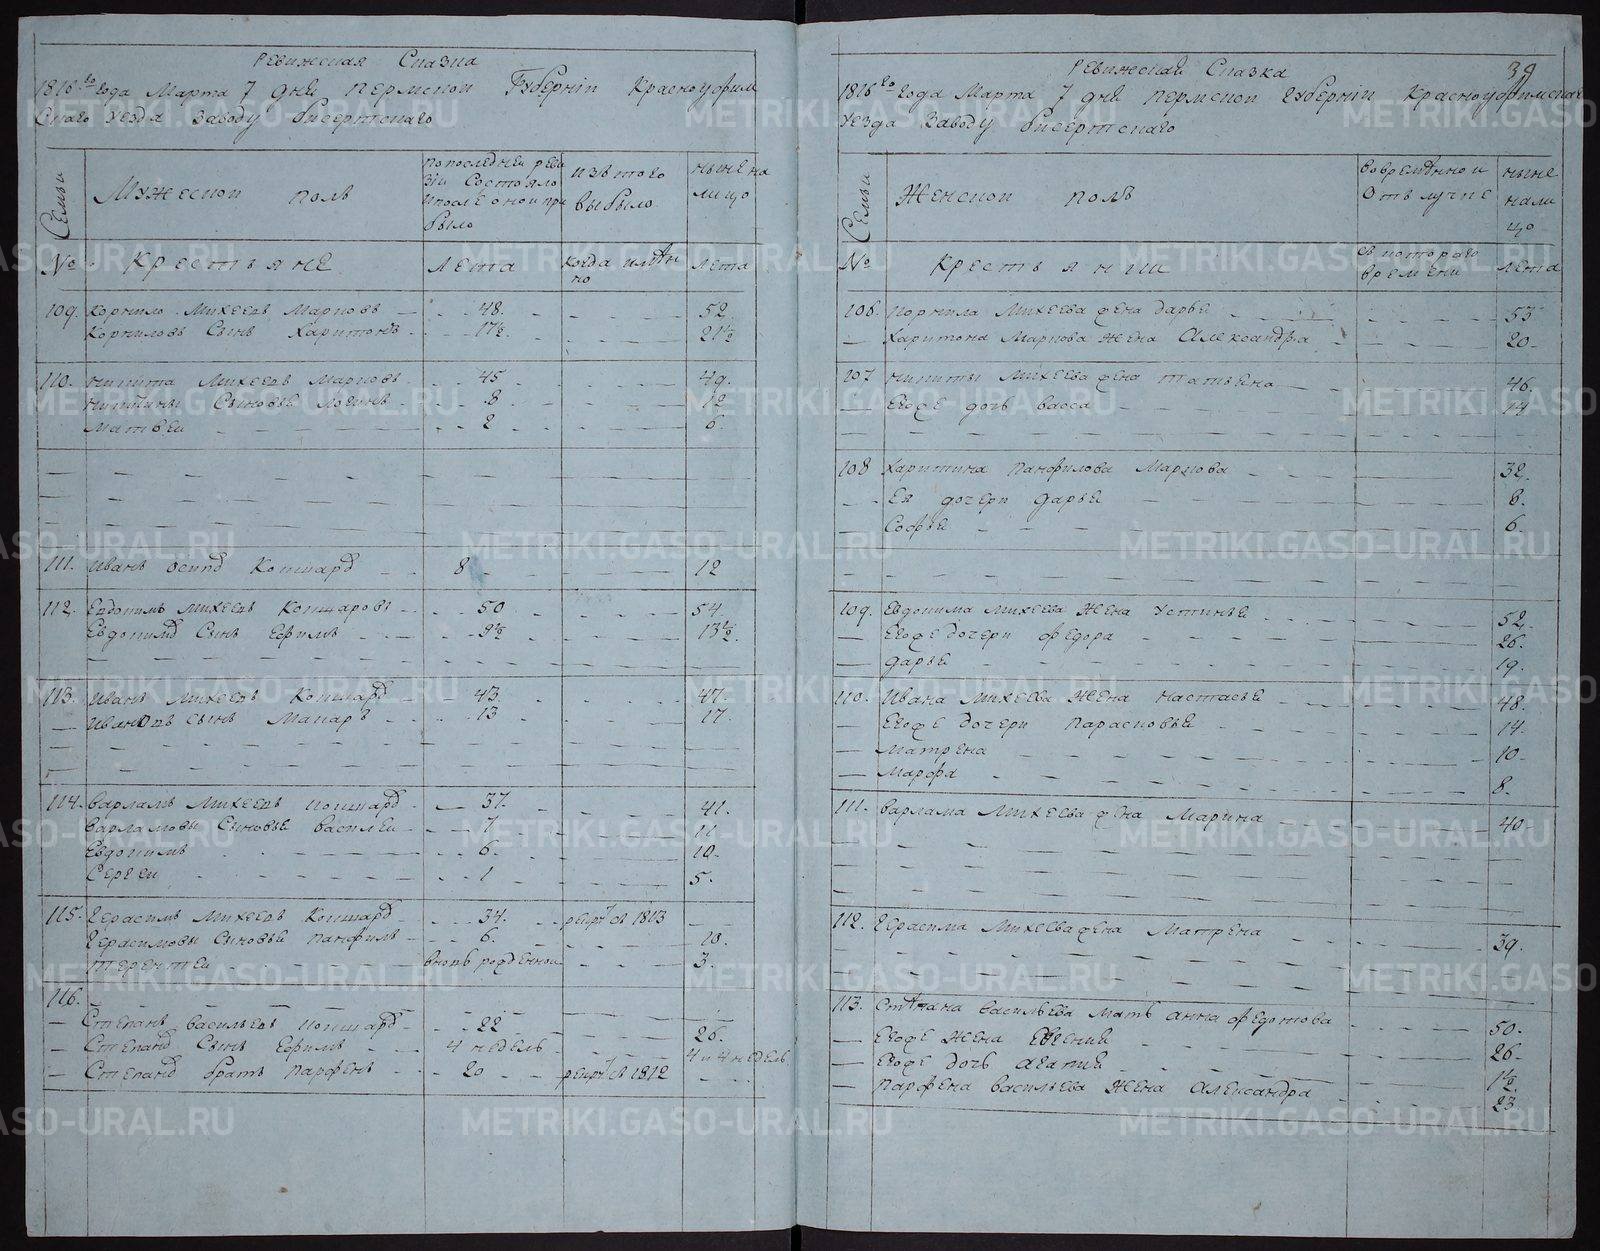 Ревижская Сказка
1816го года Марта 7 дня Пермской Губернии Красноуфим
скаго уезда заводу бисертскаго
Семьи
Мужеской полъ
по последней реви
зии состояло
и после оной при
было
изъ того
выбыло
ныне на
лицо
№
Крестьяне
лета
когда имянно
лета
109. Корнило Михеевъ Марковъ 48. 52.
Корниловъ Сынъ Харитонъ 17½ 21½
110. Никита Михеевъ Марковъ 45 49.
Никитины Сыновья Логинъ 8 12
Матвей 2 6.
111. Иванъ Осипов Кошкаров 8 12
112. Евдокимъ Михеевъ Кошкаровъ 50 54
Евдокимов Сынъ Ефимъ 9½ 13½
113. Иванъ Михеевъ Кошкаров 43 47.
Ивановъ сынъ Макаръ 13 17
114. Варламъ Михеевъ Кошкаров 37. 41.
Варламовы Сыновья Василей 7 11
Евдокимъ 6. 10.
Сергей 1 5.
115. Герасимъ Михеевъ Кошкаров 34. рекрут въ 1813
Герасимовы Сыновья Панфилъ 6. 10.
Терентей вновь рожденной 3.
116.
Степанъ Васильевъ Кошкаров 22 26.
Степанов Сынъ Ефимъ 4 недель 4 и 4 недель
Степанов братъ Парфенъ 20 рекрут въ 1812
39
Ревижская Сказка
1816го года Марта 7 дня Пермской губернии Красноуфимскаго
уезда заводу бисертскаго
Семьи
Женской полъ
во временной
отлучке
ныне
нали
цо
№
Крестьянки
съ котораго
времени
лета
106. Корнила Михеева жена Дарья 53
Харитона Маркова жена Александра 20
107 Никиты Михеева жена Татьяна 46.
Егоже дочь Васса 14
108 Харитина Панфилова Маркова 32.
Ея дочери Дарья 8.
Софья 6.
109. Евдокима Михеева жена Устинья 52.
Егоже дочери Федора 26.
Дарья 19.
110. Ивана Михеева жена Настасья 48.
Егоже дочери Парасковья 14.
Матрена 10.
Марфа 8.
111. Варлама Михеева жена Марина 40.
112. Герасима Михеева жена Матрена 39.
113. Степана Васильева мать Анна Федотова 50.
Егоже жена Евгения 26
Егоже дочь Агатия 1½
Парфена Васильева жена Александра 23
METRIKI.GASO-URAL.RU